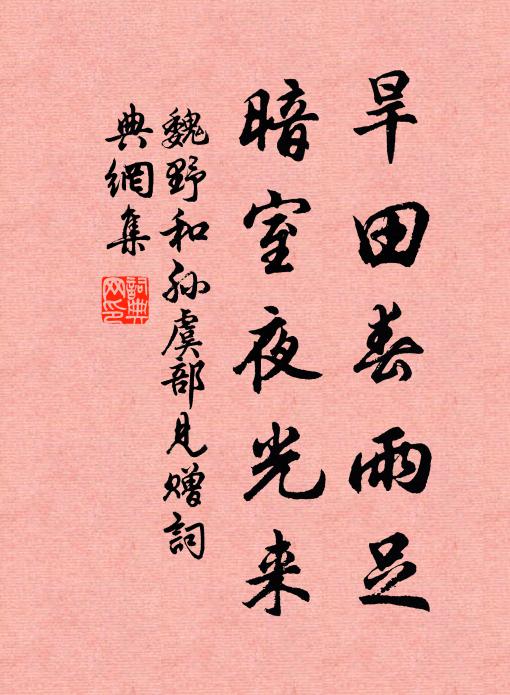 旱田春雨足
暗室夜光来
魏野和孙虞部见赠詞
典網集
詞典
网印